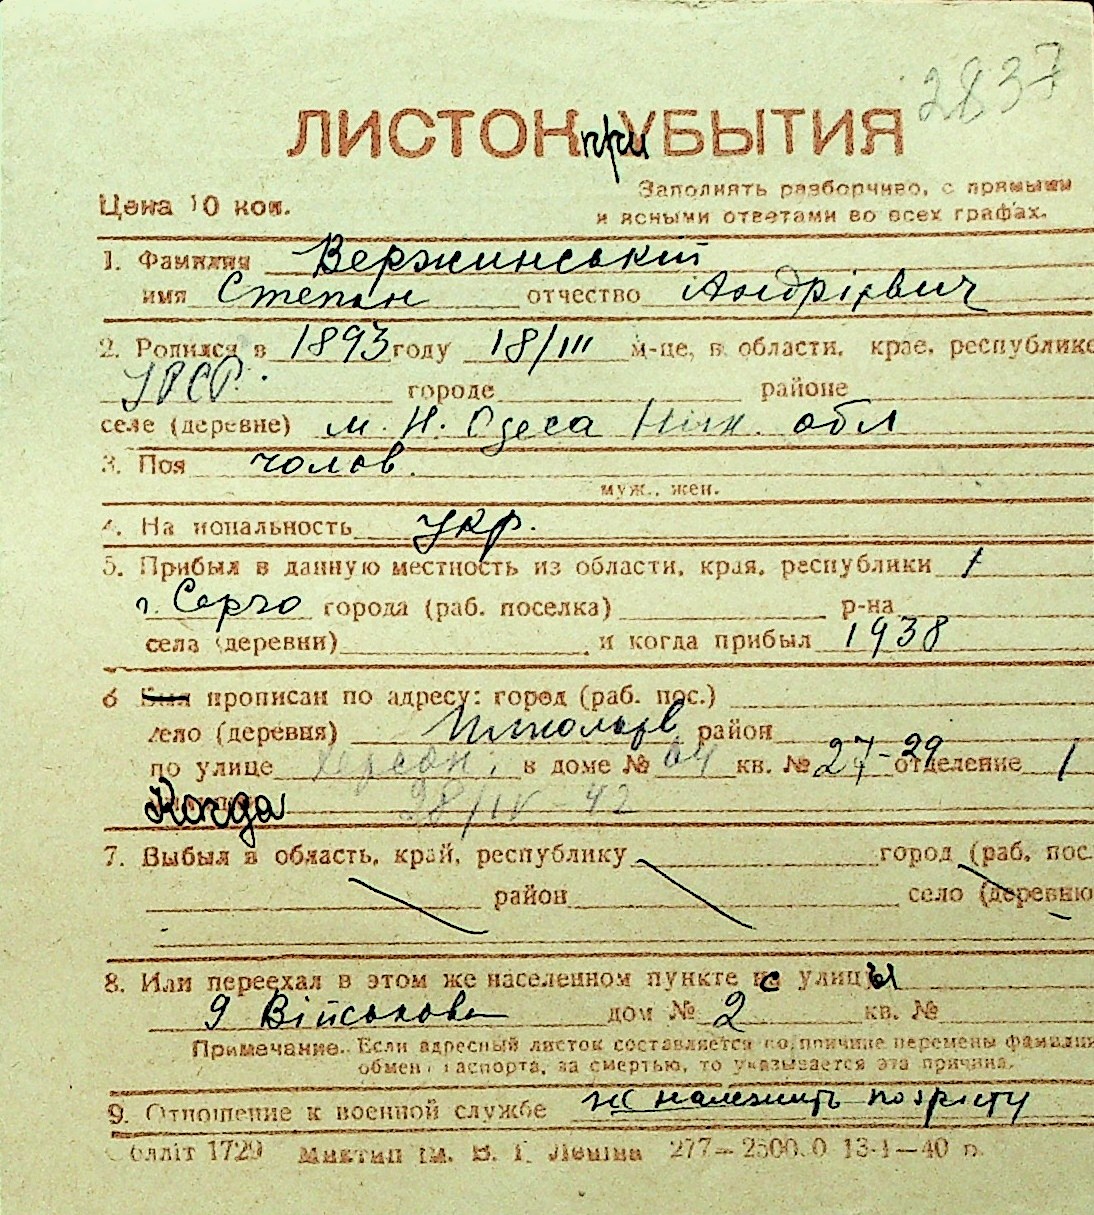 2837
ЛИСТОК приБЫТИЯ
Цена 10 коп.
Заполнять разборчиво, с прямыми
и ясными ответами во всех графах.
1. Фамилия Вержинський
имя Степан отчество Андрієвич
2. Родился в 1893 году 18/III м-це, в области, крае, республике
УРСР. городе районе
селе (деревне) м. Н. Одеса Ник. обл
3. Пол чолов.
муж., жен.
4. Национальность укр.
5. Прибыл в данную местность из области, края, республики
г. Серго города (раб. поселка) р-на
села (деревни) и когда прибыл 1938
6 Был прописан по адресу: город (раб. пос.)
село (деревня) район
по улице Херсон. в доме № 64 кв. № 27-29 отделение 1
Когда 28/IV-42
7. Выбыл в область, край, республику город (раб. пос.
район село (деревню
8. Или переехал в этом же населенном пункте с улицы
9 Військова дом № 2 кв. №
Примечание. Если адресный листок составляется по причине перемены фамилии
обмен паспорта, за смертью, то указывается эта причина.
9. Отношение к военной службе не належить по зрісту
Обліт 1729 Миктип ім. В. І. Леніна 277—2500.0 13-I—40 р.